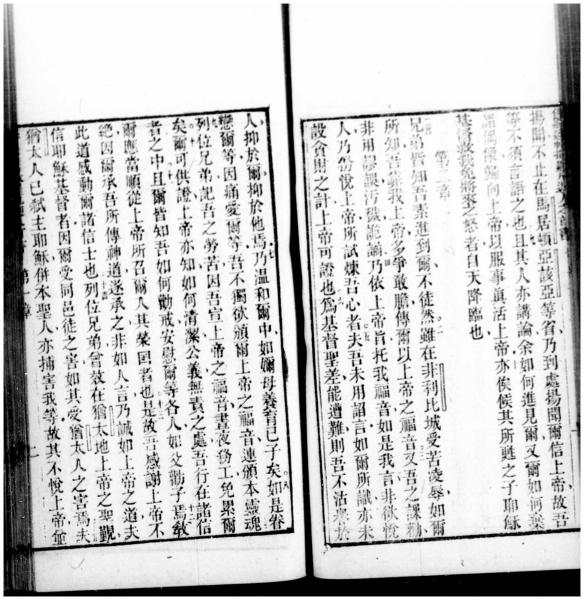 揚聞不止在馬居頓亞該亞等省乃到處揚聞爾信上帝故吾
等不須言語之也且其人亦講論余如何進見爾又爾如何棄
神思像歸向上帝以服事眞活上帝亦俟候其所甦之子耶穌
基督救我免將來之怒者自天降臨也
第二章
兄弟皆知吾素進到爾不徒然雖在非利比城受苦凌辱如爾
所知吾靠我上帝多爭敢膽傳爾以上帝之福音又吾之課勸
非用謬誤污穢詭譎乃依上帝旨托我福音如是我言非欲悅
人乃勿悅上帝所試煉吾心者夫吾未用諂言如爾所識亦未
設會財之計上帝可證也爲基督聖差能遭難則吾不沽譽於
人抑於爾抑於他焉乃溫和爾中如嬭母養育己子矣如是眷
戀爾等因痛愛爾等吾不獨欲頒爾上帝之福音連頒本靈魂
列位兄弟記吾之勞苦因吾宣上帝之福音晝夜務工免累爾
矣爾可供證上帝亦知如何清潔公義無責之處吾行在諸信
者之中且爾皆知吾如何勸戒安慰爾等各人如父勸子焉敎
爾應當順從上帝所召爾人其榮國者也是故吾感謝上帝不
絶因爾承吾所傳神道遂承之非如人言乃誠如上帝之道夫
此道感動爾諸信士也列位兄弟曾效在猶太地上帝之聖觀
信耶穌基督者因爾受同邑徒之害如其受猶太人之害焉夫
猶太人已弒主耶穌併本聖人亦捕害我等故其不悅上帝並